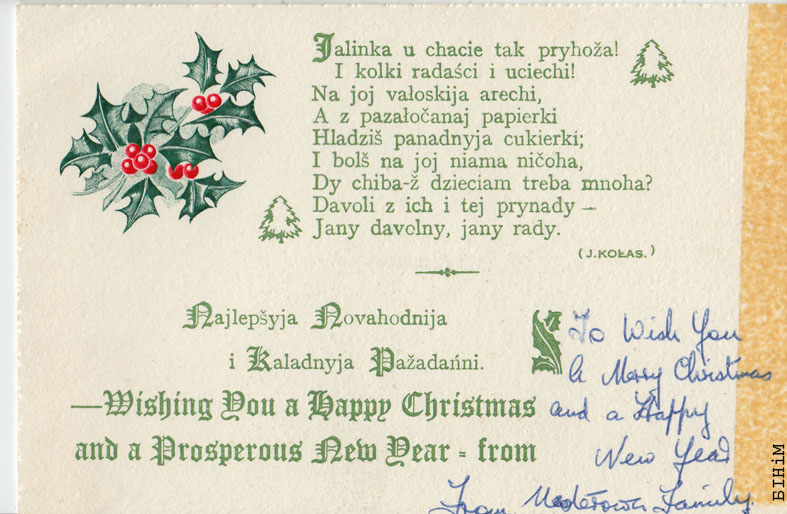 Jalinka u chacie tak pryhoža!
I kolki radaści i uciechi!
Na joj vałoskija arechi,
A z pazałočanaj papierki
Hladziš panadnyja cukierki;
I bolš na joj niama ničoha,
Dy chiba-ž dzieciam treba mnoha?
Davoli z ich i tej prynady —
Jany davolny, jany rady.
(J.KOŁAS.)
Najlepšyja Novahodnija
i Kaladnyja Pažadańni.
—Wishing You a Happy Christmas
and a Prosperous New Year - from
To Wish You
A Merry Christmas
and a Happy
New Year
From Family.
БІНіМ